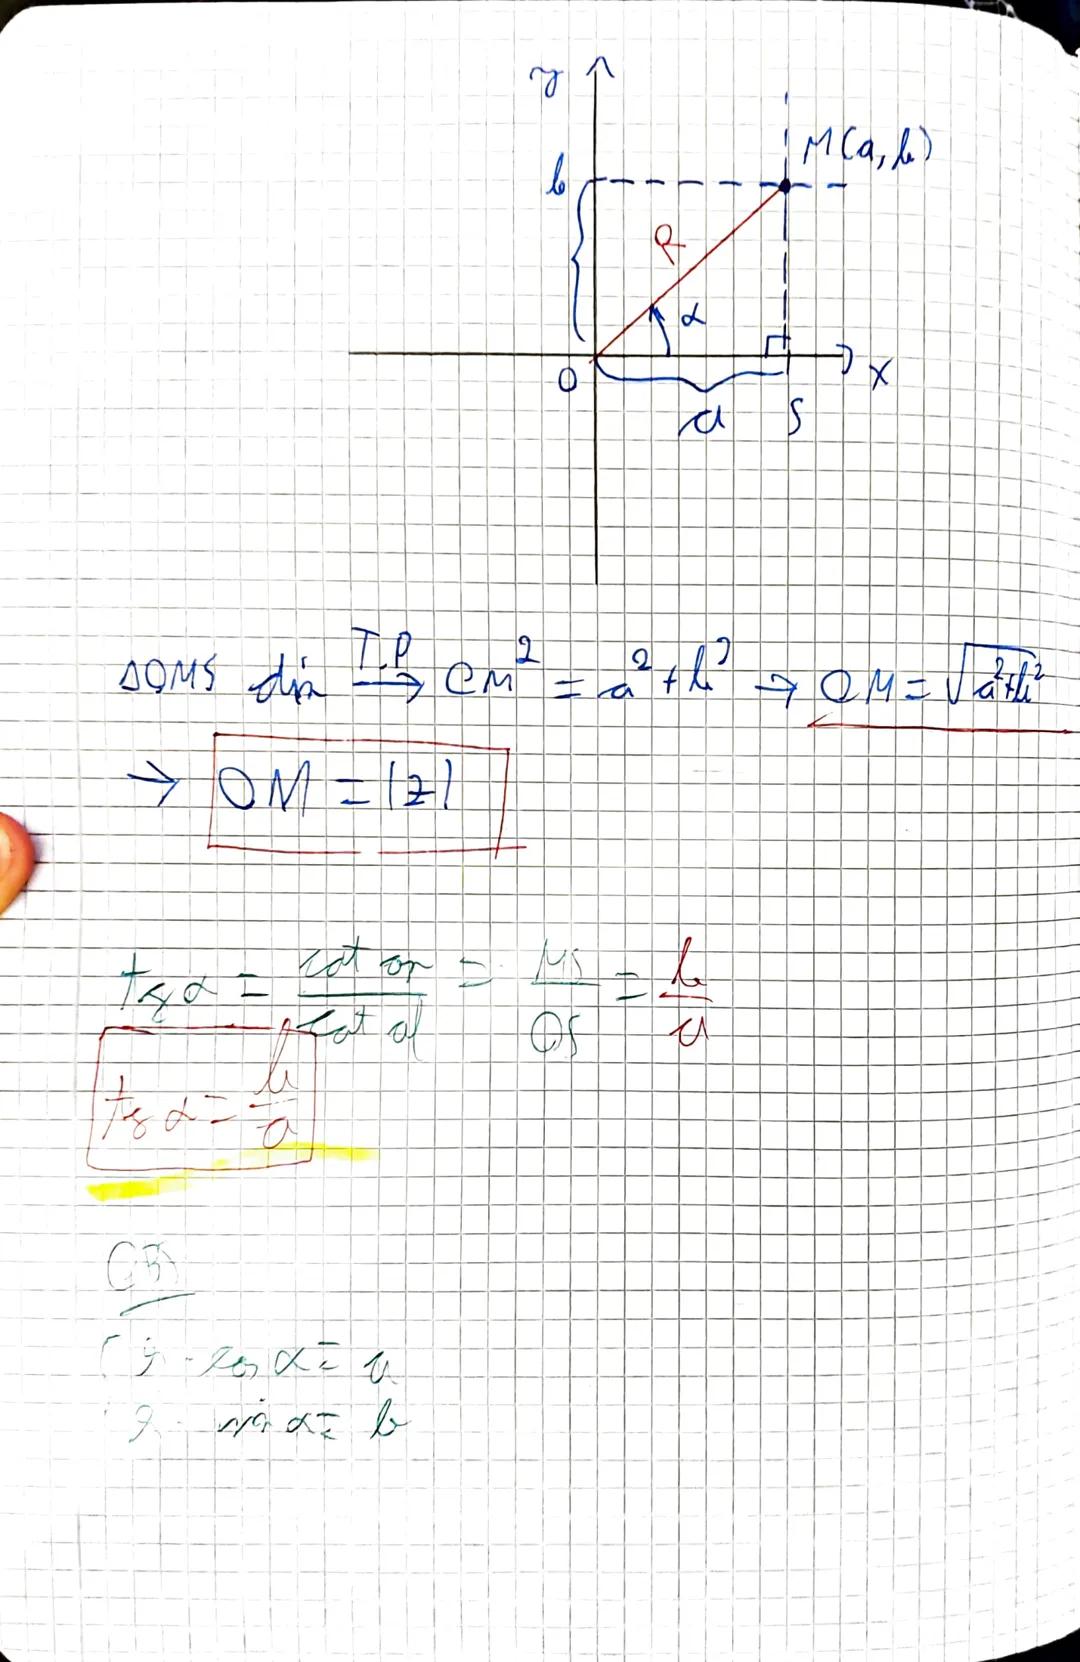 y
M(a,b)
b
R
α
O
x
a
S
ΔOMS din T.P → OM² = a² + b² → OM = √a²+b²
→ OM = |z|
tg α = cat op / cat al = MS / OS = b / a
tg α = b / a
OB
r · cos α = a
r · sin α = b